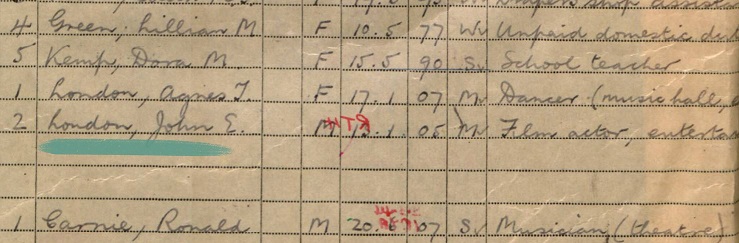 4 Green, Lillian M F 10.5 77 W Unpaid domestic
5 Kemp, Dora M. F 15.5 90 S. School teacher
1 London, Agnes T. F 17.1 07 M. Dancer (music hall,
2 London, John E. M 1 05 M Film actor,
1 Carnie, Ronald M 20. 07 S. Musician (theatre)